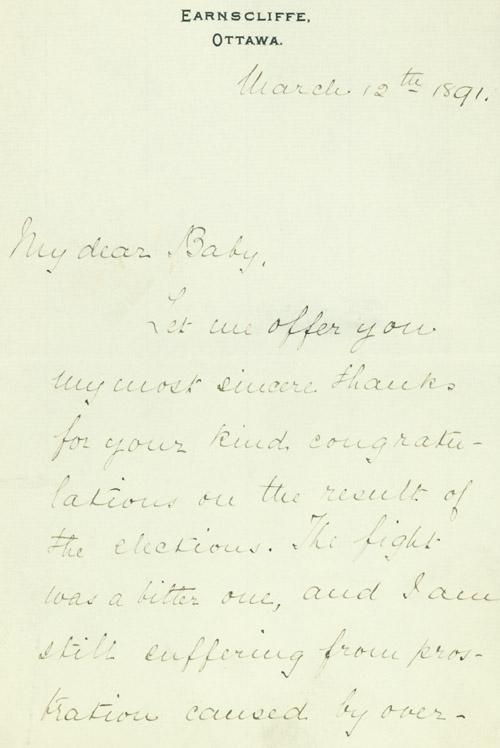 EARNSCLIFFE,
OTTAWA.
March 12th 1891.
My dear Baby,
Let me offer you
my most sincere thanks
for your kind congratu-
lations on the result of
the elections. The fight
was a bitter one, and I am
still suffering from pros-
tration caused by over-